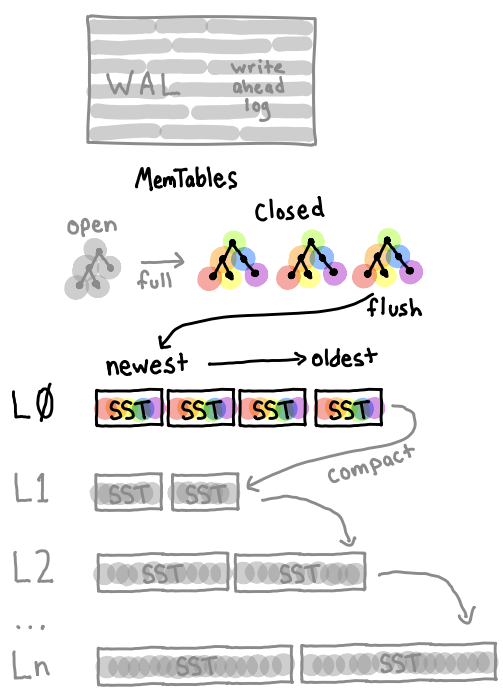 WAL
write
ahead
log
MemTables
open
Closed
full
flush
newest
oldest
L0
SST SST SST SST
compact
L1
SST SST
L2
SST SST
...
Ln
SST SST